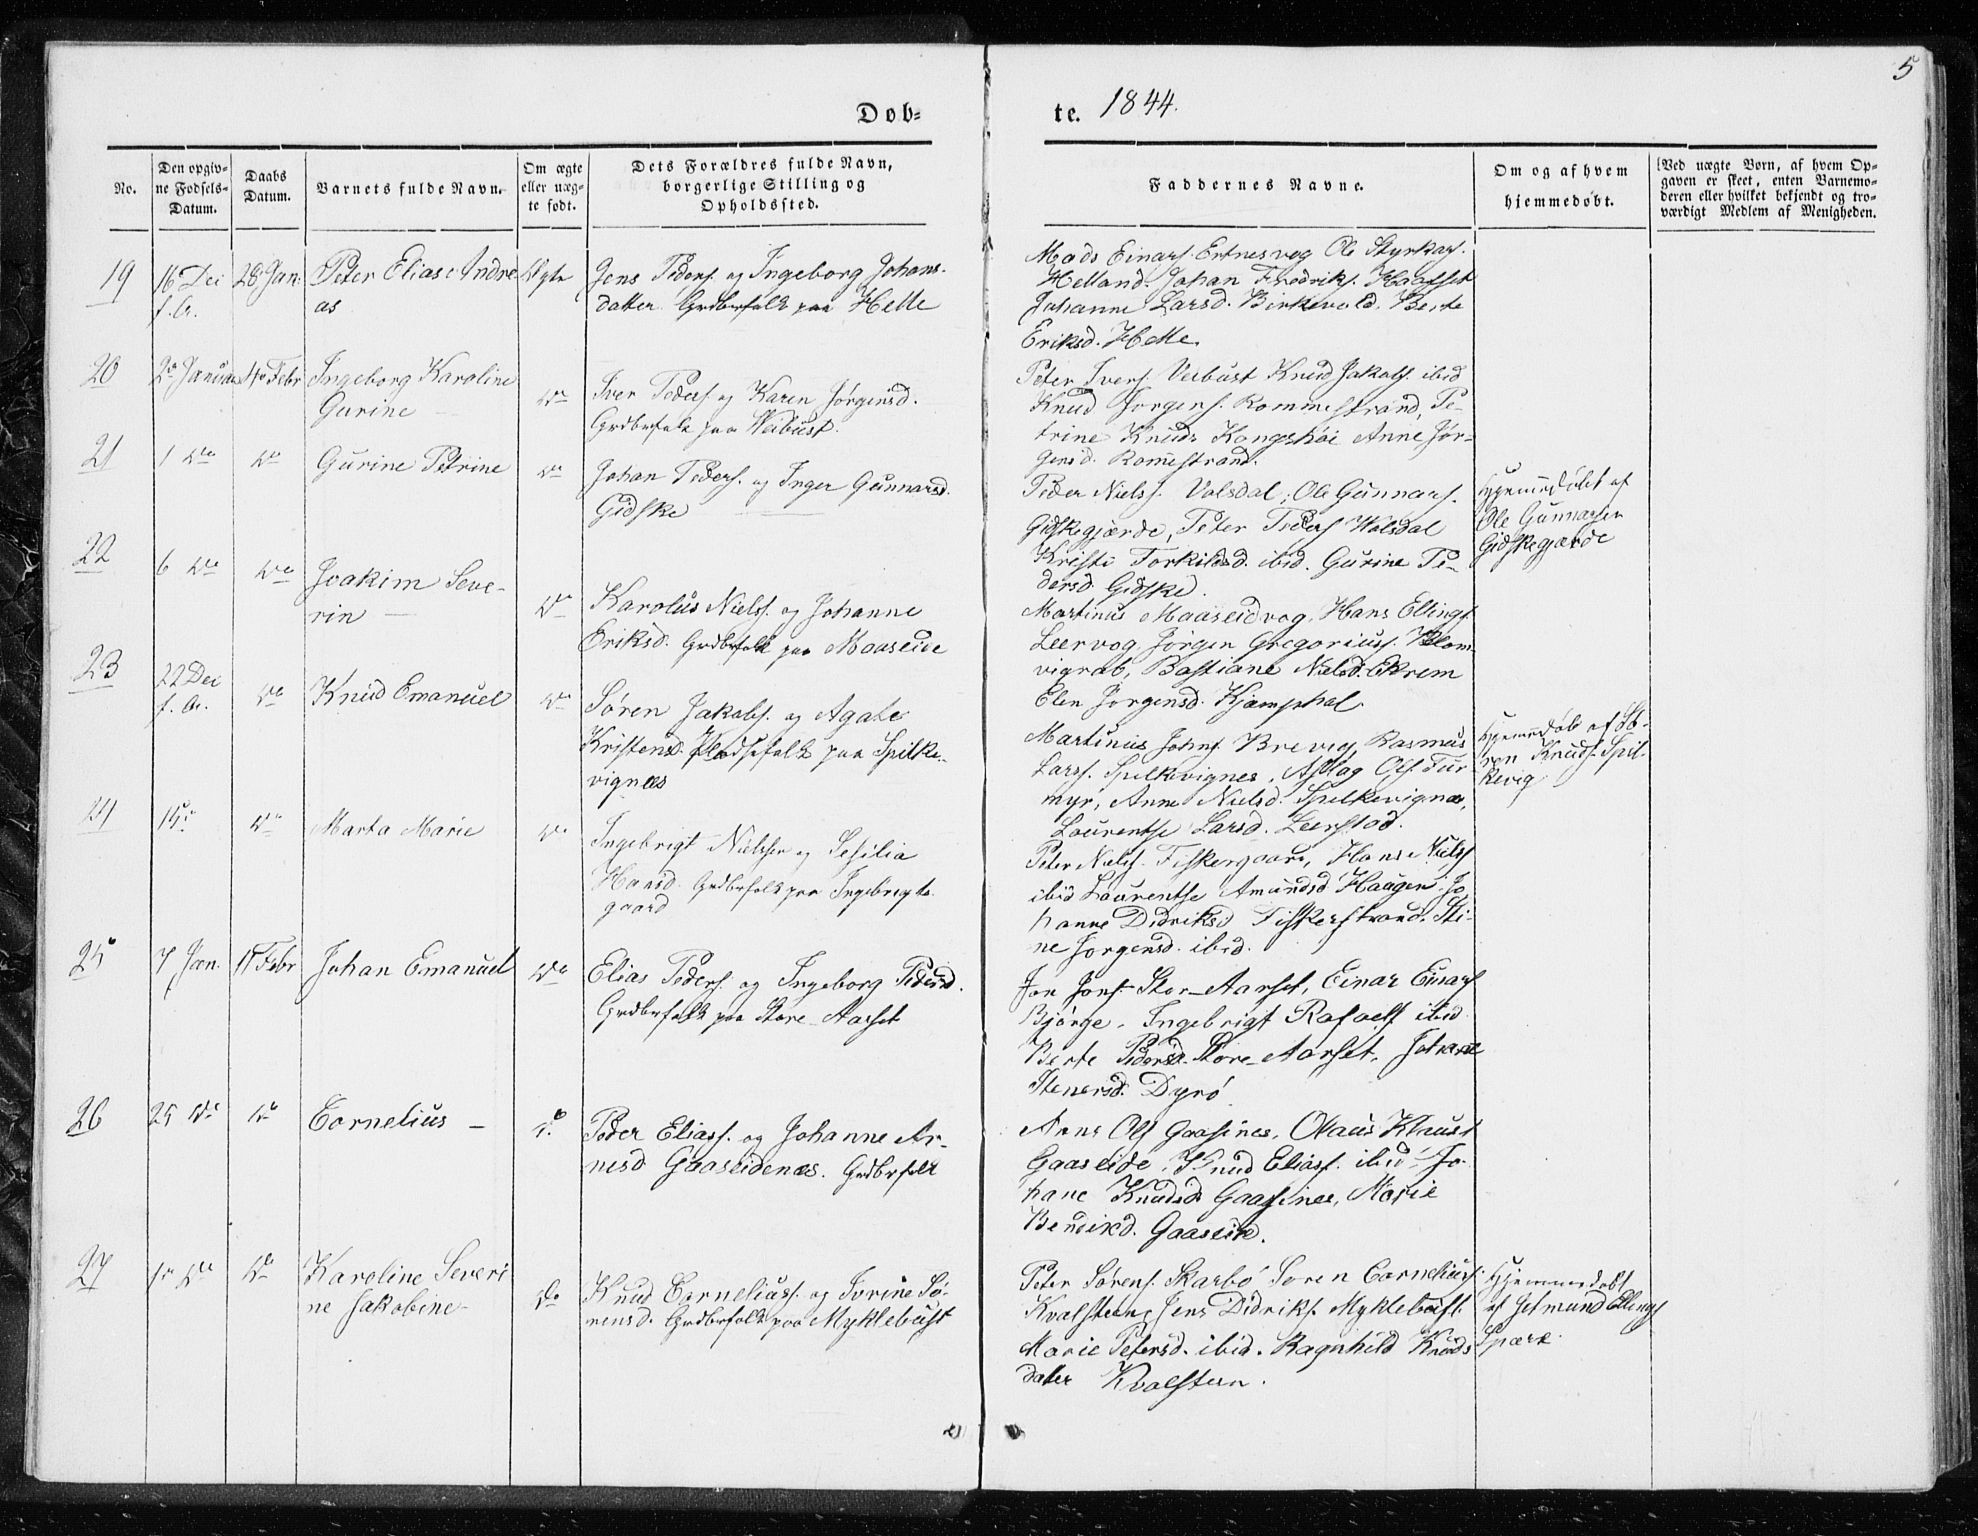 5
Døb-
te. 1844.
No.
Den opgiv-
ne Fødsels-
Datum.
Daabs
Datum.
Barnets fulde Navn.
Om ægte
eller uæg-
te født.
Dets Forældres fulde Navn,
borgerlige Stilling og
Opholdssted.
Faddernes Navne.
Om og af hvem
hjemmedøbt.
Ved uægte Børn, af hvem Op-
gaven er skeet, enten Barnemo-
deren eller hvilket bekjendt og tro-
værdigt Medlem af Menigheden.
19
16 Dec
f. A.
28 Jan.
Peter Elias Andre
as
Ægte
Jens Peders. og Ingeborg Johans-
datter Grdbrfolk paa Helle
Mads Einars. Ertnesvog Ole Styrkars.
Helland. Johan Fredriks.
Johanne Larsd. Birkevold. Berte
Eriksd. Helle.
20
2 Januar
4 Febr
Ingeborg Karoline
Gurine
Do
Iver Peders og Karen Jørgensd.
Grdbrfolk paa Veibust.
Peter Ivers. Veibust Knud Jakobs. ibid
Knud Jørgens. Rommestrand, Pe-
trine Knuds Kongshøi Anne Jør-
gensd. Romestrand.
21
1 Do
Do
Gurine Petrine
Do
Johan Peders. og Inger Gunnarsd.
Gidske
Peder Niels. Volsdal, Ole Gunnars.
Gidskegjærde, Peter Peders Wolsdal
Kristi Torkildsd. ibid. Gurine Pe-
dersd Gidske.
Hjemmedøbt af
Ole Gunnarsen
Gidskegjærde
22
6 Do
Do
Joakim Seve-
rin
Do
Karolus Niels. og Johanne
Eriksd. Grdbrfolk paa Maaseide
Martinus Maaseidvog, Hans Ellings.
Leervog, Jørgen Gregorius. Blom
vigrab, Bastiane Nielsd. Ekrem
Elen Jørgensd. Kjamphol
23
22 Dec
f. A.
Do
Knud Emanuel
Do
Søren Jakobs. og Agate
Kristensd. Pladsefolk paa Spilke-
vignæs
Martinus Johns. Brevig, Rasmus
Lars. Spilkevignes, Aslag Ols. Fur
myr, Anne Nielsd. Spilkevignæs,
Laurentse Larsd. Leerstad.
Hjemmedøb af Sö-
ren Knuds. Spil-
kevig
24
15
Do
Marta Marie
Do
Ingebrigt Nielssen og Sesilia
Hansd. Grdbrfolk paa Ingebrigts
gaard
Peter Niels. Fiskergaare, Hans Niels
ibid Laurentse Amundsd Haugen Jo
hanne Didriksd Fiskerstrand. Sti-
ne Jorgensd. ibid.
25
7 Jan.
11 Febr
Johan Emanuel
Do
Elias Peders. og Ingeborg Pedersd.
Grdbrfolk paa Store Aarset
Jon Jons. Stor-Aarset, Einar Einars
Bjørge, Ingebrigt Rafaels ibid.
Berte Pedersd. Store-Aarset, Johane
Stenersd. Dyrø
26
25 Do
Do
Cornelius
Do
Peder Elias. og Johanne Ar-
nesd Gaaseidenæs. Grdbrfolk
Aans Ols Gaasines, Olaus Klaus
Gaaseide, Knud Elias. ibid Jo-
hane Knudsd. Gaasines, Marie
Bendikd. Gaaseide.
27
Do
Do
Karoline Severi
ne Jakobine
Do
Knud Cornelius. og Ivrine Sø-
rensd. Grdbrfolk paa Myklebust
Peter Sørens. Skarbø Soren Cornelius.
Kvalsteen, Jens Didriks. Myklebust
Marie Petersd. ibid. Ragnhild Knuds
dater Kvalsteen.
Hjemmedøbt
af Jetmund Ellings
Spære